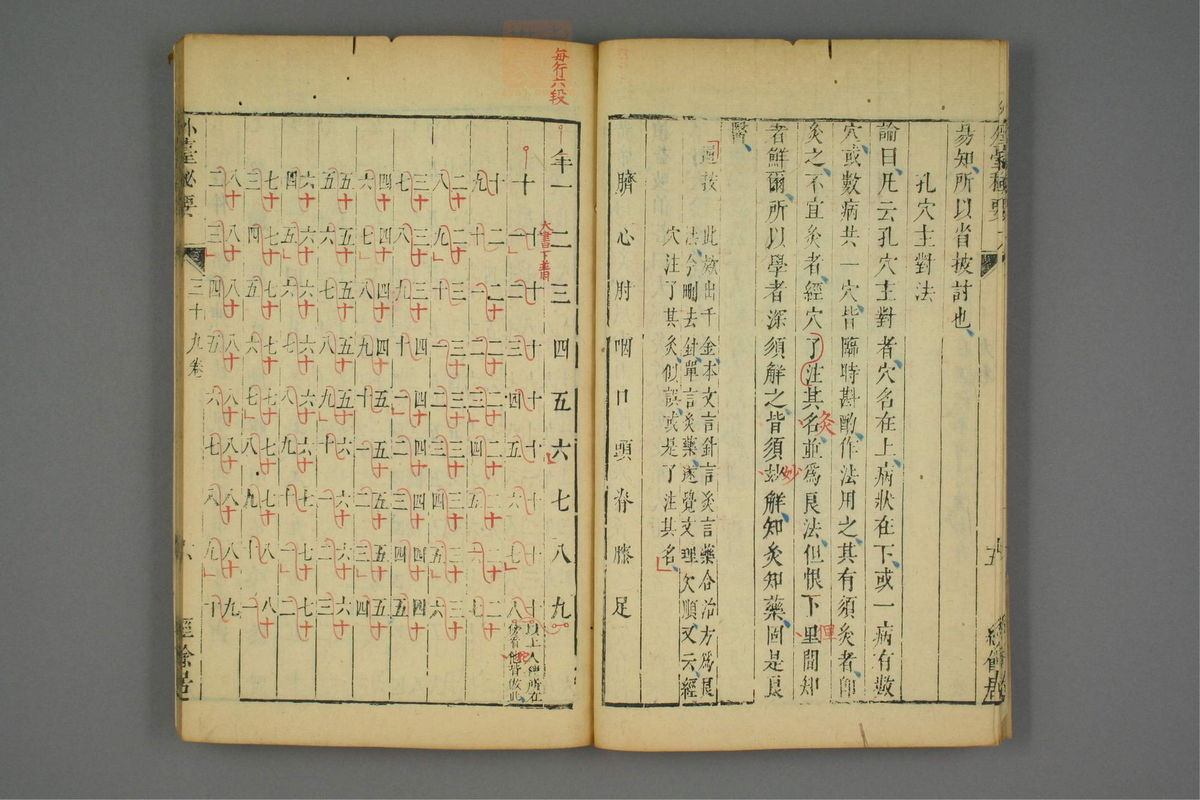 易知所以省披討也
孔穴主對法
論曰凡云孔穴主對者穴名在上病狀在下或一病有數
穴或數病共一穴皆臨時斟酌作法用之其有須灸者卽
灸之不宜灸者經穴了注其名並爲良法但恨下里間知
灸
俚
者鮮爾所以學者深須解之皆須妙解知灸知藥固是良
妙
醫
此歘出千金本文言針言灸言藥合治方爲良
法今刪去針單言灸藥遂覺文理欠順又云經
穴注了其灸似誤或是了注其名
臍 心 肘 咽 口 頭 脊 膝 足
每行六段
年一 二 三 四 五 六 七 八 九
十 十一 十二 十三 十四 十五 十六 十七 十八
以上人神所在
看他皆倣此
十九 二十 二十一 二十二 二十三 二十四 二十五 二十六 二十七
二十八 二十九 三十 三十一 三十二 三十三 三十四 三十五 三十六
三十七 三十八 三十九 四十 四十一 四十二 四十三 四十四 四十五
四十六 四十七 四十八 四十九 五十 五十一 五十二 五十三 五十四
五十五 五十六 五十七 五十八 五十九 六十 六十一 六十二 六十三
六十四 六十五 六十六 六十七 六十八 六十九 七十 七十一 七十二
七十三 七十四 七十五 七十六 七十七 七十八 七十九 八十 八十一
八十二 八十三 八十四 八十五 八十六 八十七 八十八 八十九 九十
外臺秘要 三十九卷 六 經餘居